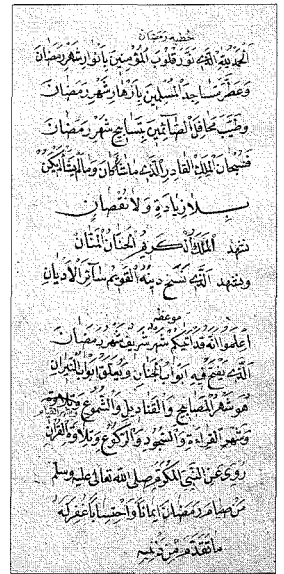 خطبه رمضان
الحمد لله الذي نور قلوب المؤمنين بانوار شهر رمضان
وعطر مساجد المسلمين بازهار شهر رمضان
وطيب محافل الصائمين بتسابيح شهر رمضان
فسبحان الملك القادر الذي ما شاء كان وما لم يشأ لم يكن
بلا زيادة ولا نقصان
نشهد الملك الكريم الحنان المنان
ونشهد الذي نسخ دينه القويم سائر الاديان
موعظه
اعلموا انه قد اتيكم شهر شريف شهر رمضان
الذي يفتح فيه ابواب الجنان ويغلق ابواب النيران
هو شهر المصابيح والقناديل والشموع
وشهر القراءة والسجود والركوع وتلاوة القرآن
روى عن النبي المكرم صلى الله تعالى عليه وسلم
من صام رمضان ايمانا واحتسابا غفر له
ما تقدم من ذنبه